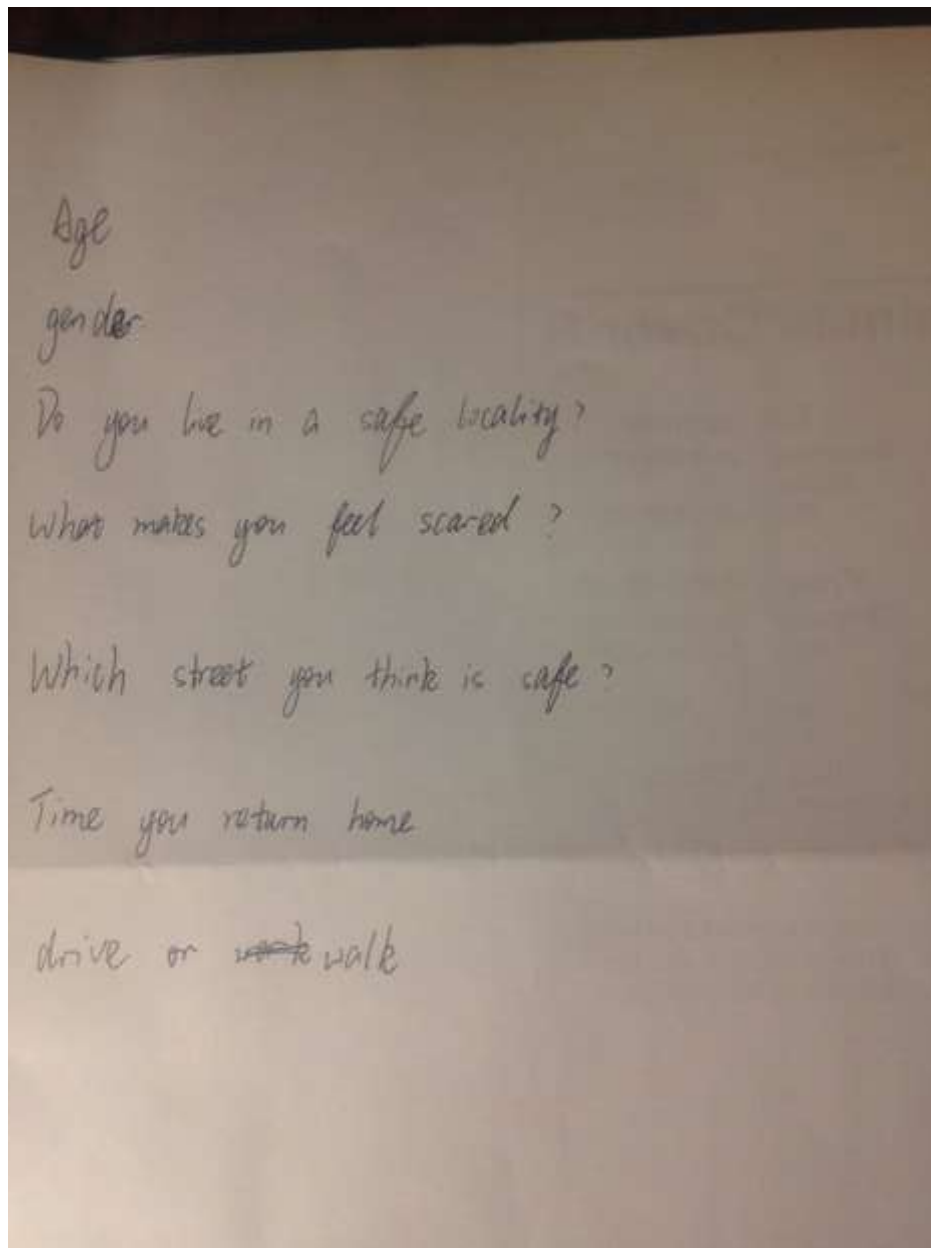 Age
gender
Do you live in a safe locality?
What makes you feel scared ?
Which street you think is safe ?
Time you return home
drive or walk